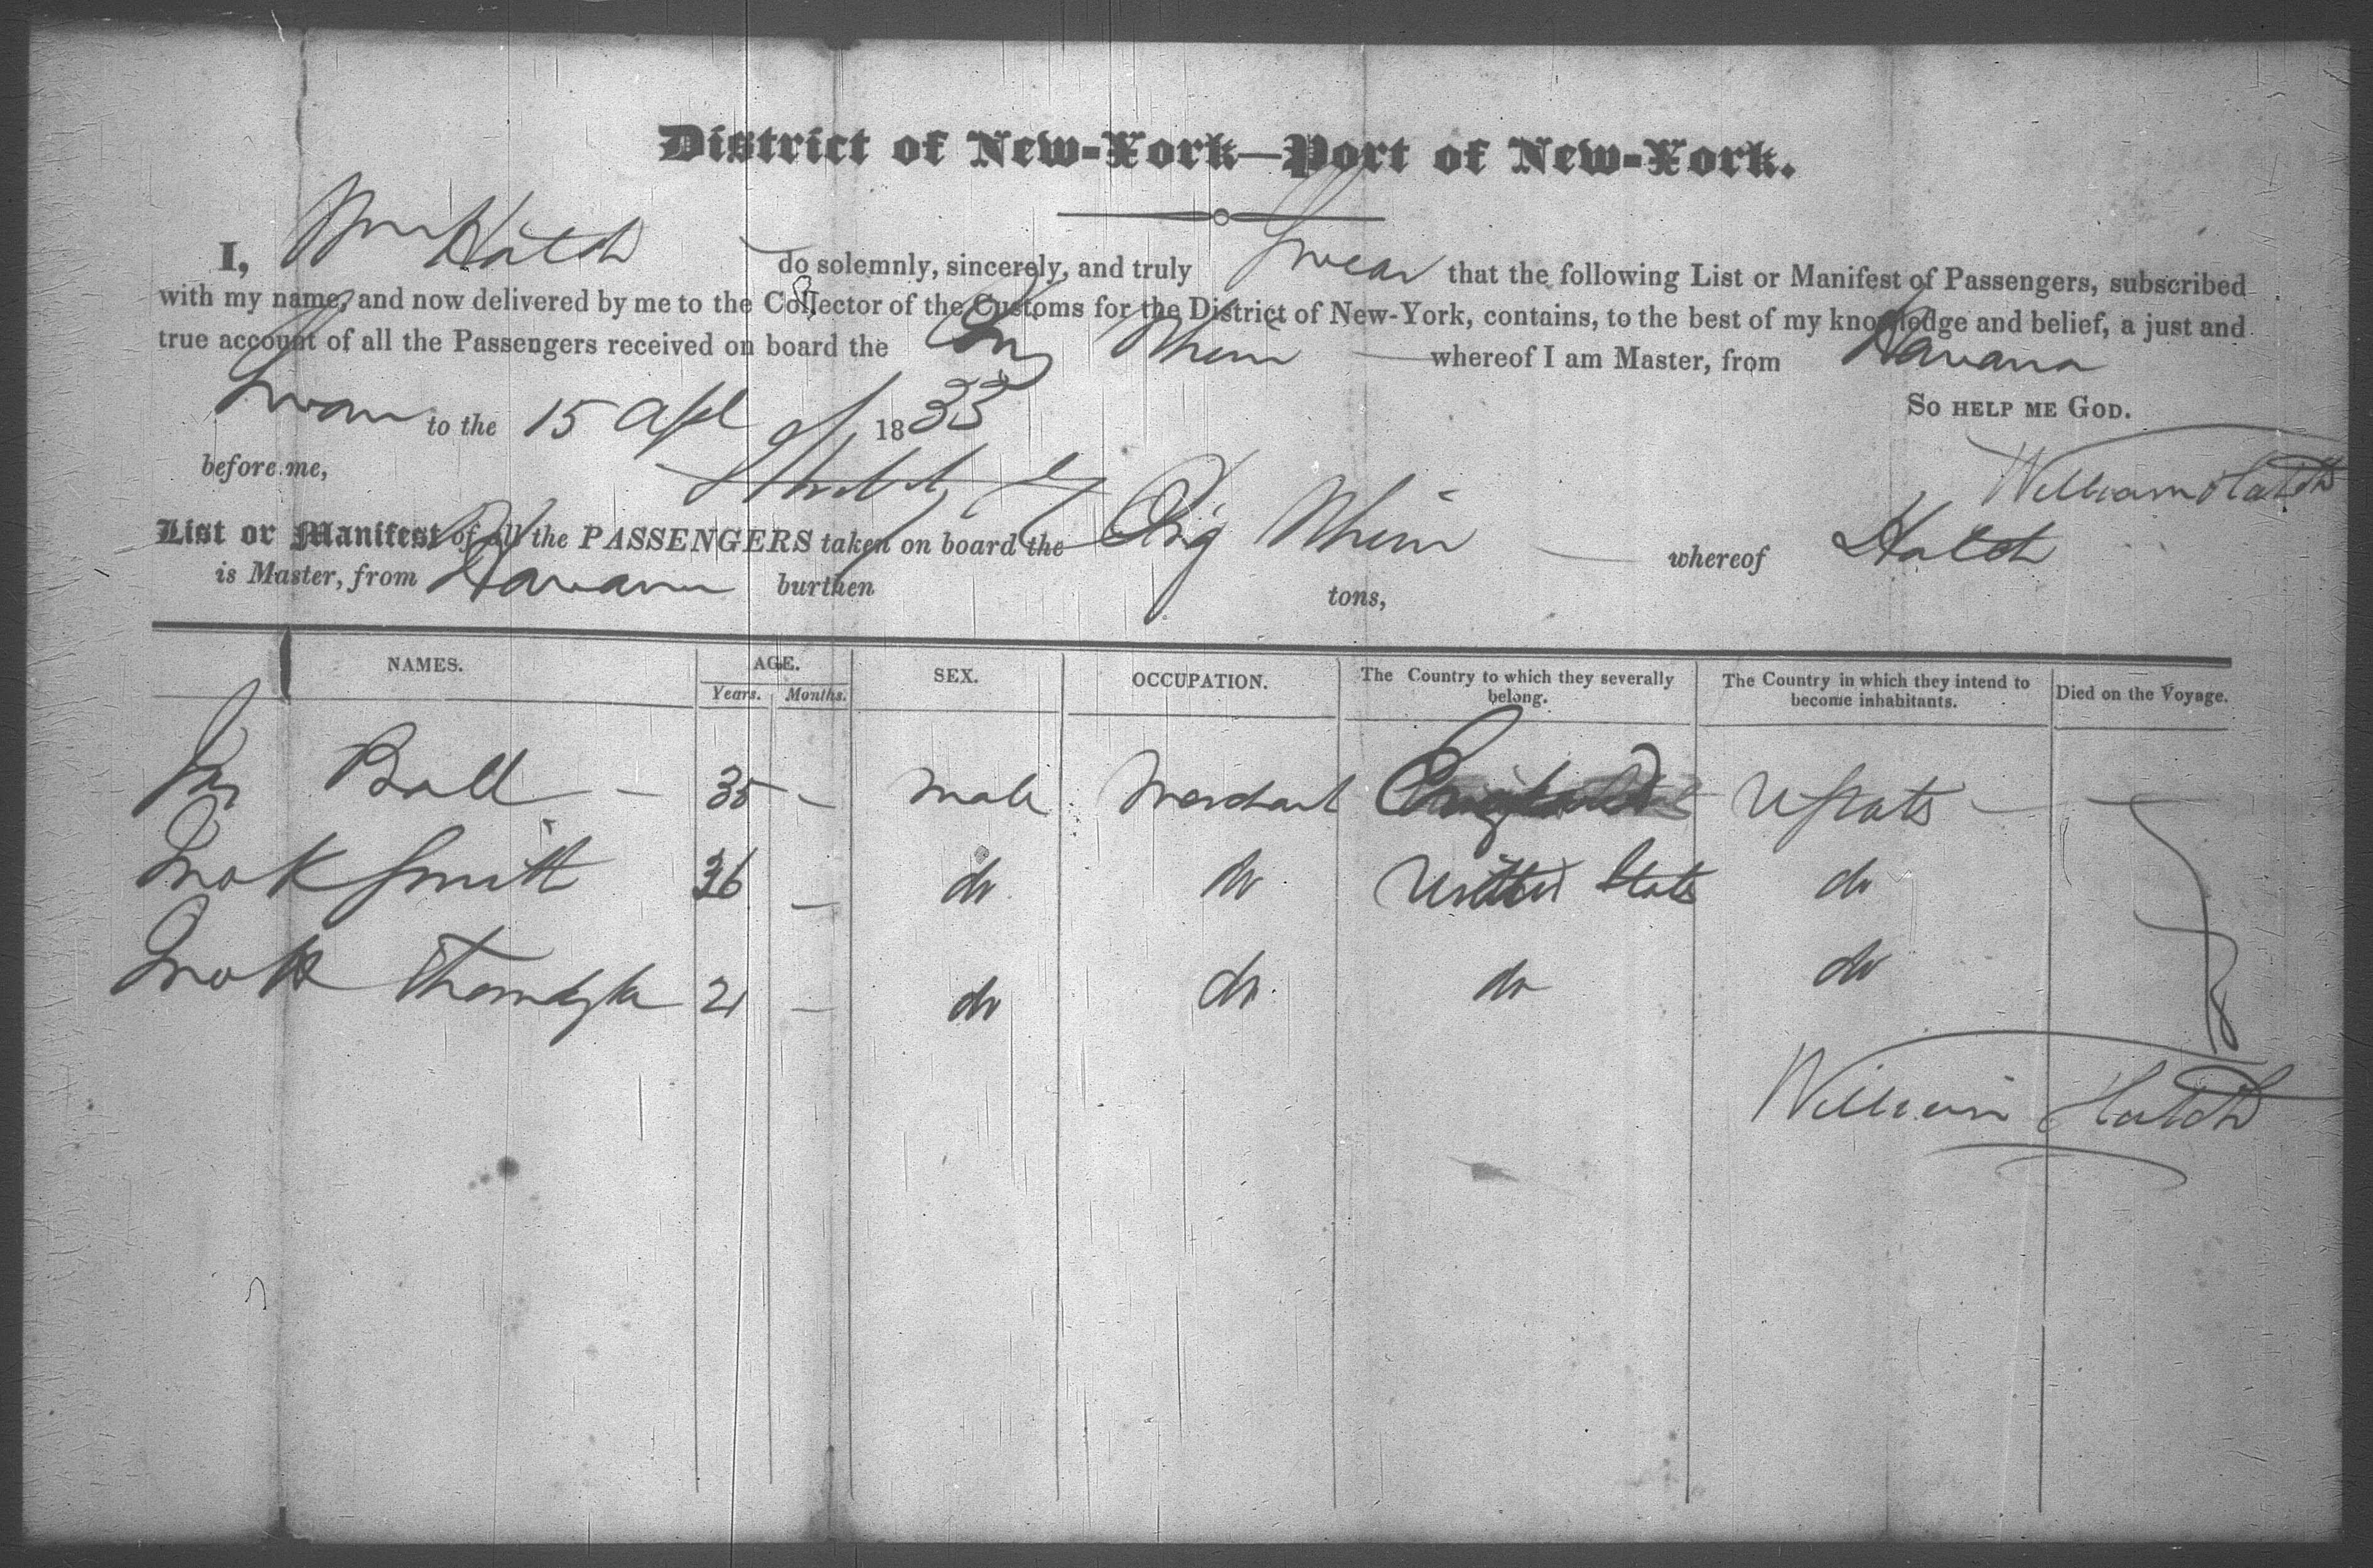 District of New-York—Port of New-York.
I, Wm Hatch do solemnly, sincerely, and truly Swear that the following List or Manifest of Passengers, subscribed
with my name, and now delivered by me to the Collector of the Customs for the District of New-York, contains, to the best of my knowledge and belief, a just and
true account of all the Passengers received on board the Brig whereof I am Master, from Havana
Sworn to the 15 Apl 1833 So help me God.
before me, William Hatch
List or Manifest of all the PASSENGERS taken on board the Brig whereof Hatch
is Master, from Havana burthen tons,
NAMES. AGE. Years. Months. SEX. OCCUPATION. The Country to which they severally belong. The Country in which they intend to become inhabitants. Died on the Voyage.
Ball — 35 — Male Merchant England U States —
Smith 36 — do do United States do
21 — do do do do
William Hatch